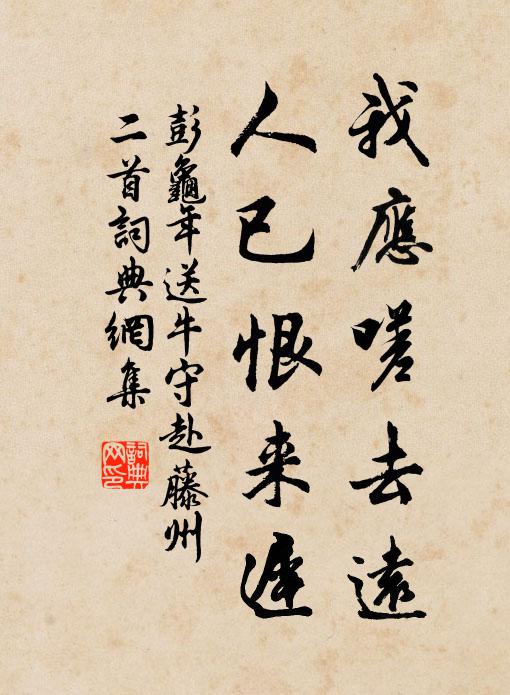 我應嗟去遠
人已恨来遲
彭龜年送牛守赴藤州
二首詞典網集
詞典
网印